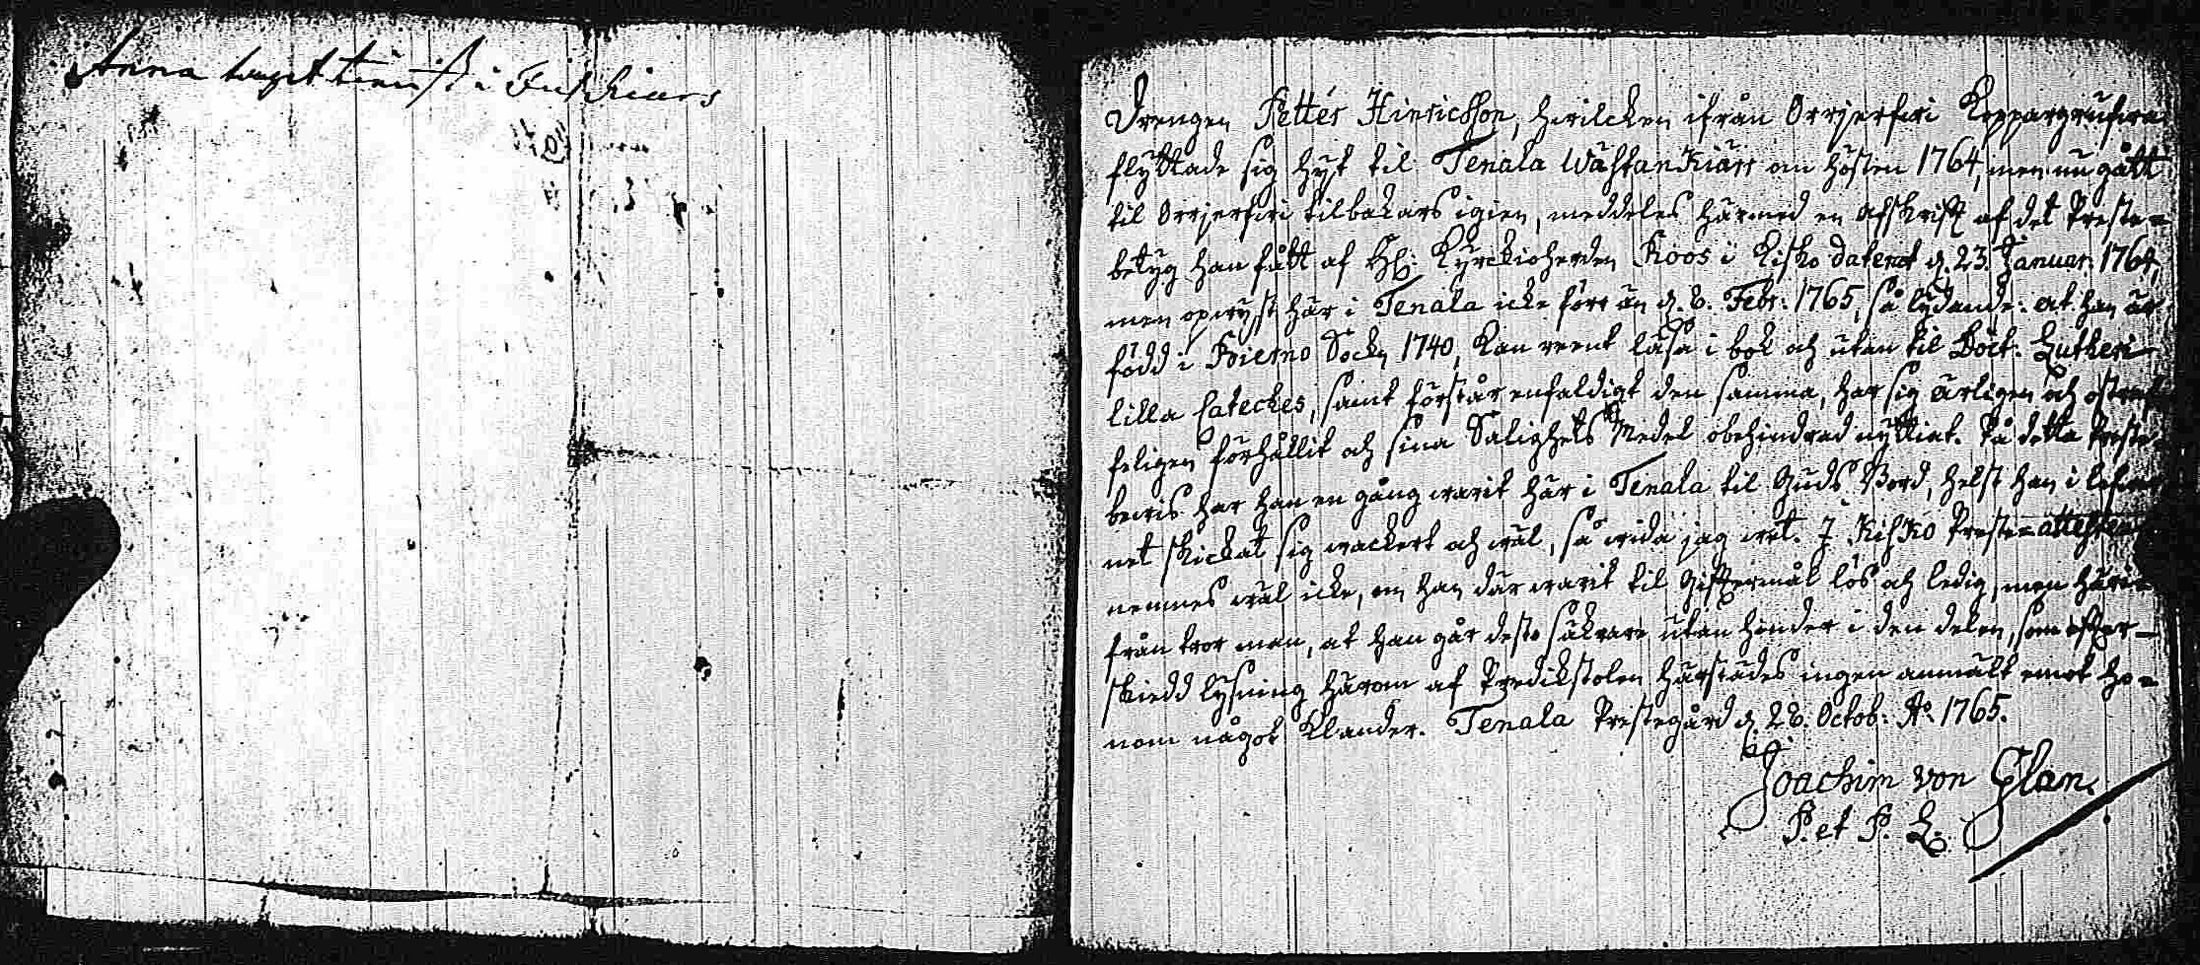 Anna tagit tienst i Fiskars
Drengen Petter Hinricsson, hvilcken ifrån Orrjerfwi Koppargrufwa
flyttade sig hyt til Tenala Wästankiärr om hösten 1764, men nu gått
til Orrjerfwi tilbakars igien, meddeles härmed en afskrift af det Preste=
betyg han fått af H: Kyrckioherden Roos i Kisko daterat d. 23. Januar. 1764,
men opwyst här i Tenala icke förr än d. 8. Febr. 1765, så lydande: at han är
född i Bierno Sockn 1740, kan reent läsa i bok och utan til Doct: Lutheri
lilla Cateches, samt förstår enfaldigt den samma, har sig ärligen och ostraf
feligen förhållit och sina Salighets Medel obehindrad nyttiat. På detta Preste-
bewis har han en gång warit här i Tenala til Guds Bord, helst han i lefwer
net skickat sig wackert och wäl, så wida jag wet. I Kisko Preste=attesten
nemnes wäl icke, om han där warit til Giftermål lös och ledig, men häri=
från tror man, at han går desto säkrare utan hinder i den delen, som efter-
skiedd lysning härom af Predikstolen härstädes ingen anmält emot ho=
nom något Klander. Tenala Prestegård d. 28. Octob. Ao. 1765.
Joachim von Glan.
P. et P. L.